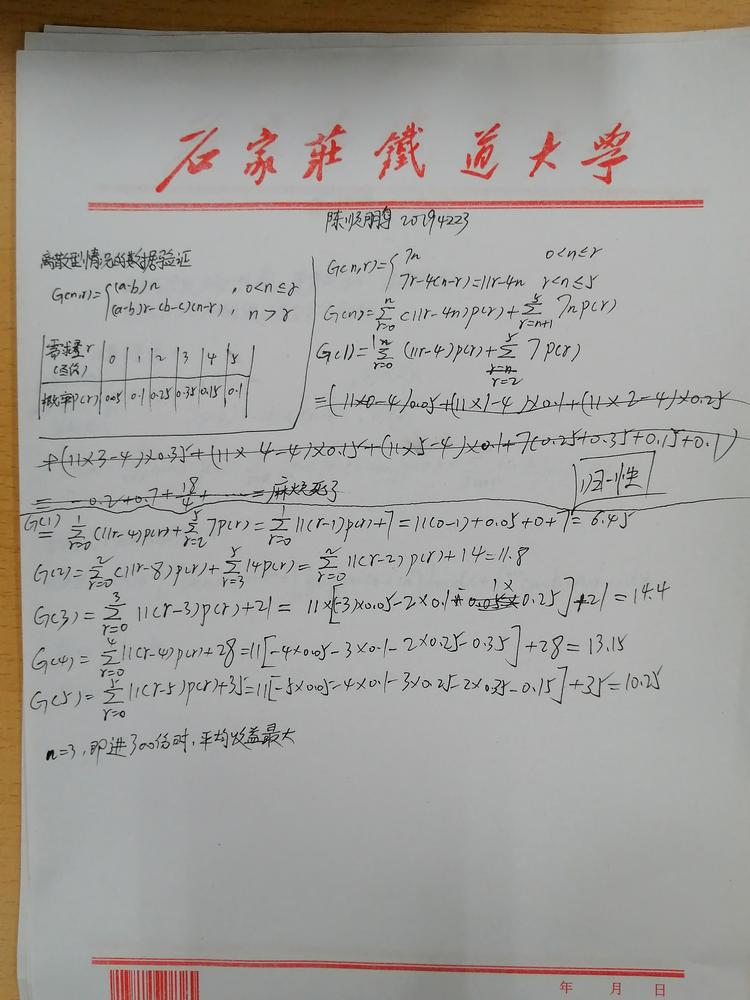 石家莊鐵道大學
陈顺鹏 20194223
离散型情况的数据验证
G(n,r)={(a-b)n , 0<n≤r
(a-b)r-(b-c)(n-r), n>r
需求量r (百份) 0 1 2 3 4 5
概率P(r) 0.05 0.1 0.25 0.35 0.15 0.1
G(n,r)={7n 0<n≤r
7r-4(n-r)=11r-4n r<n≤5
G(n)=∑_{r=0}^{n} (11r-4n)p(r)+∑_{r=n+1}^{5} 7np(r)
G(1)=∑_{r=0}^{1} (11r-4)p(r)+∑_{r=2}^{5} 7p(r)
=(11×0-4)0.05+(11×1-4)×0.1+(11×2-4)×0.25
+(11×3-4)×0.35+(11×4-4)×0.15+(11×5-4)×0.1+7(0.25+0.35+0.15+0.1)
=-0.2+0.7+18/4+……=麻烦死了
归一性
G(1)=∑_{r=0}^{1} (11r-4)p(r)+∑_{r=2}^{5} 7p(r)=∑_{r=0}^{1} 11(r-1)p(r)+7=11(0-1)+0.05+0+7=6.45
G(2)=∑_{r=0}^{2} (11r-8)p(r)+∑_{r=3}^{5} 14p(r)=∑_{r=0}^{2} 11(r-2)p(r)+14=11.8
G(3)=∑_{r=0}^{3} 11(r-3)p(r)+21=11×[-3)×0.05-2×0.1-1×0.25]+21=14.4
G(4)=∑_{r=0}^{4} 11(r-4)p(r)+28=11[-4×0.05-3×0.1-2×0.25-0.35]+28=13.15
G(5)=∑_{r=0}^{5} 11(r-5)p(r)+35=11[-5×0.05-4×0.1-3×0.25-2×0.35-0.15]+35=10.25
n=3,即进300份时,平均收益最大
年 月 日